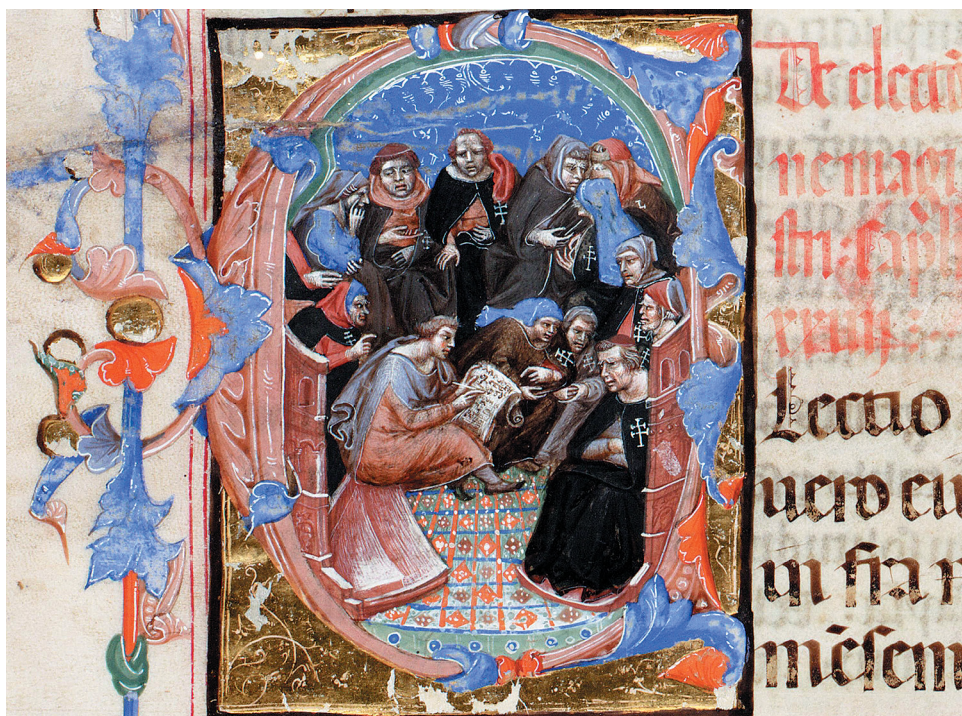 De electi
ne magi
stri: Capl
xxviij.
Lectio
uero eiu
in fra
mēsem